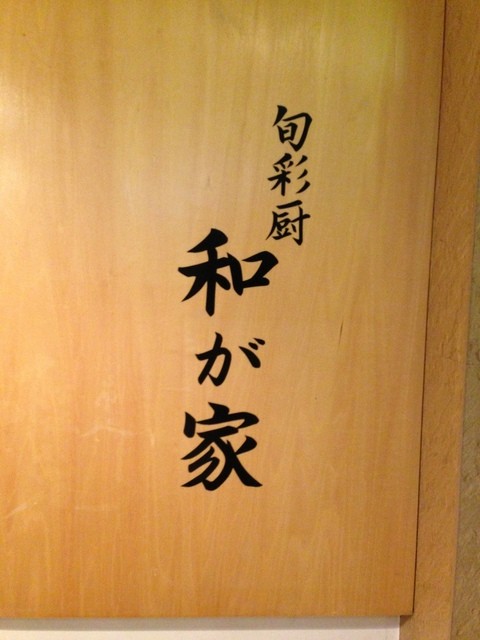 旬彩厨
和が家